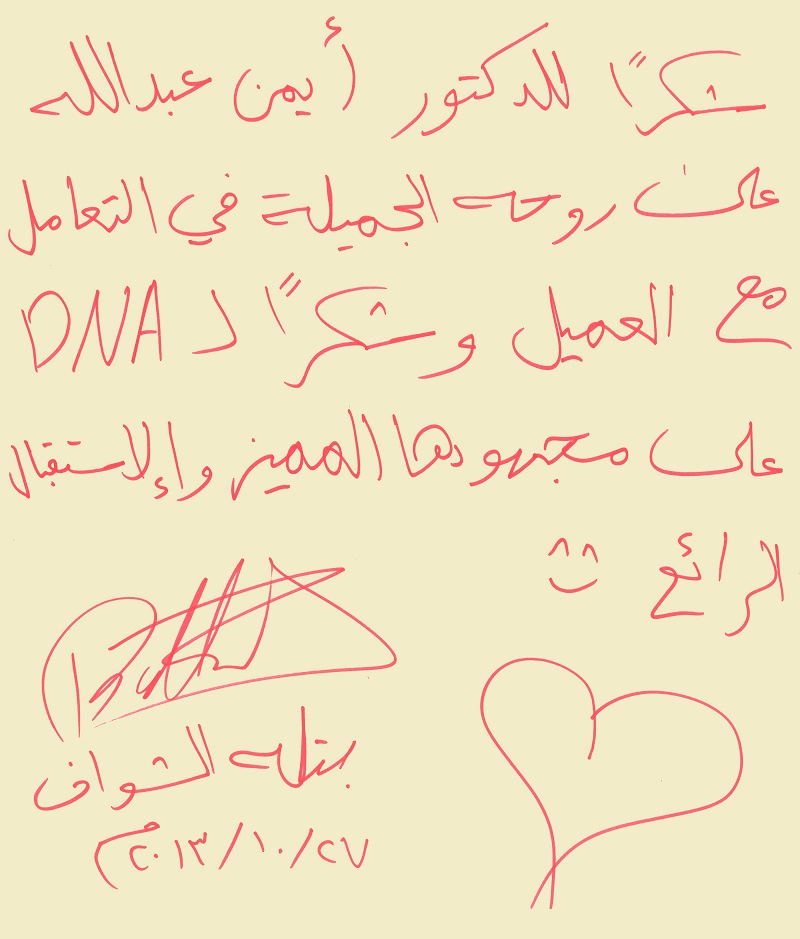 شكرًا للدكتور أيمن عبدالله
على روحه الجميلة في التعامل
مع العميل وشكرًا لـ DNA
على مجهودها المميز وإلاستقبال
الرائع
بتله الشواف
٢٠١٣/١٠/٢٧م